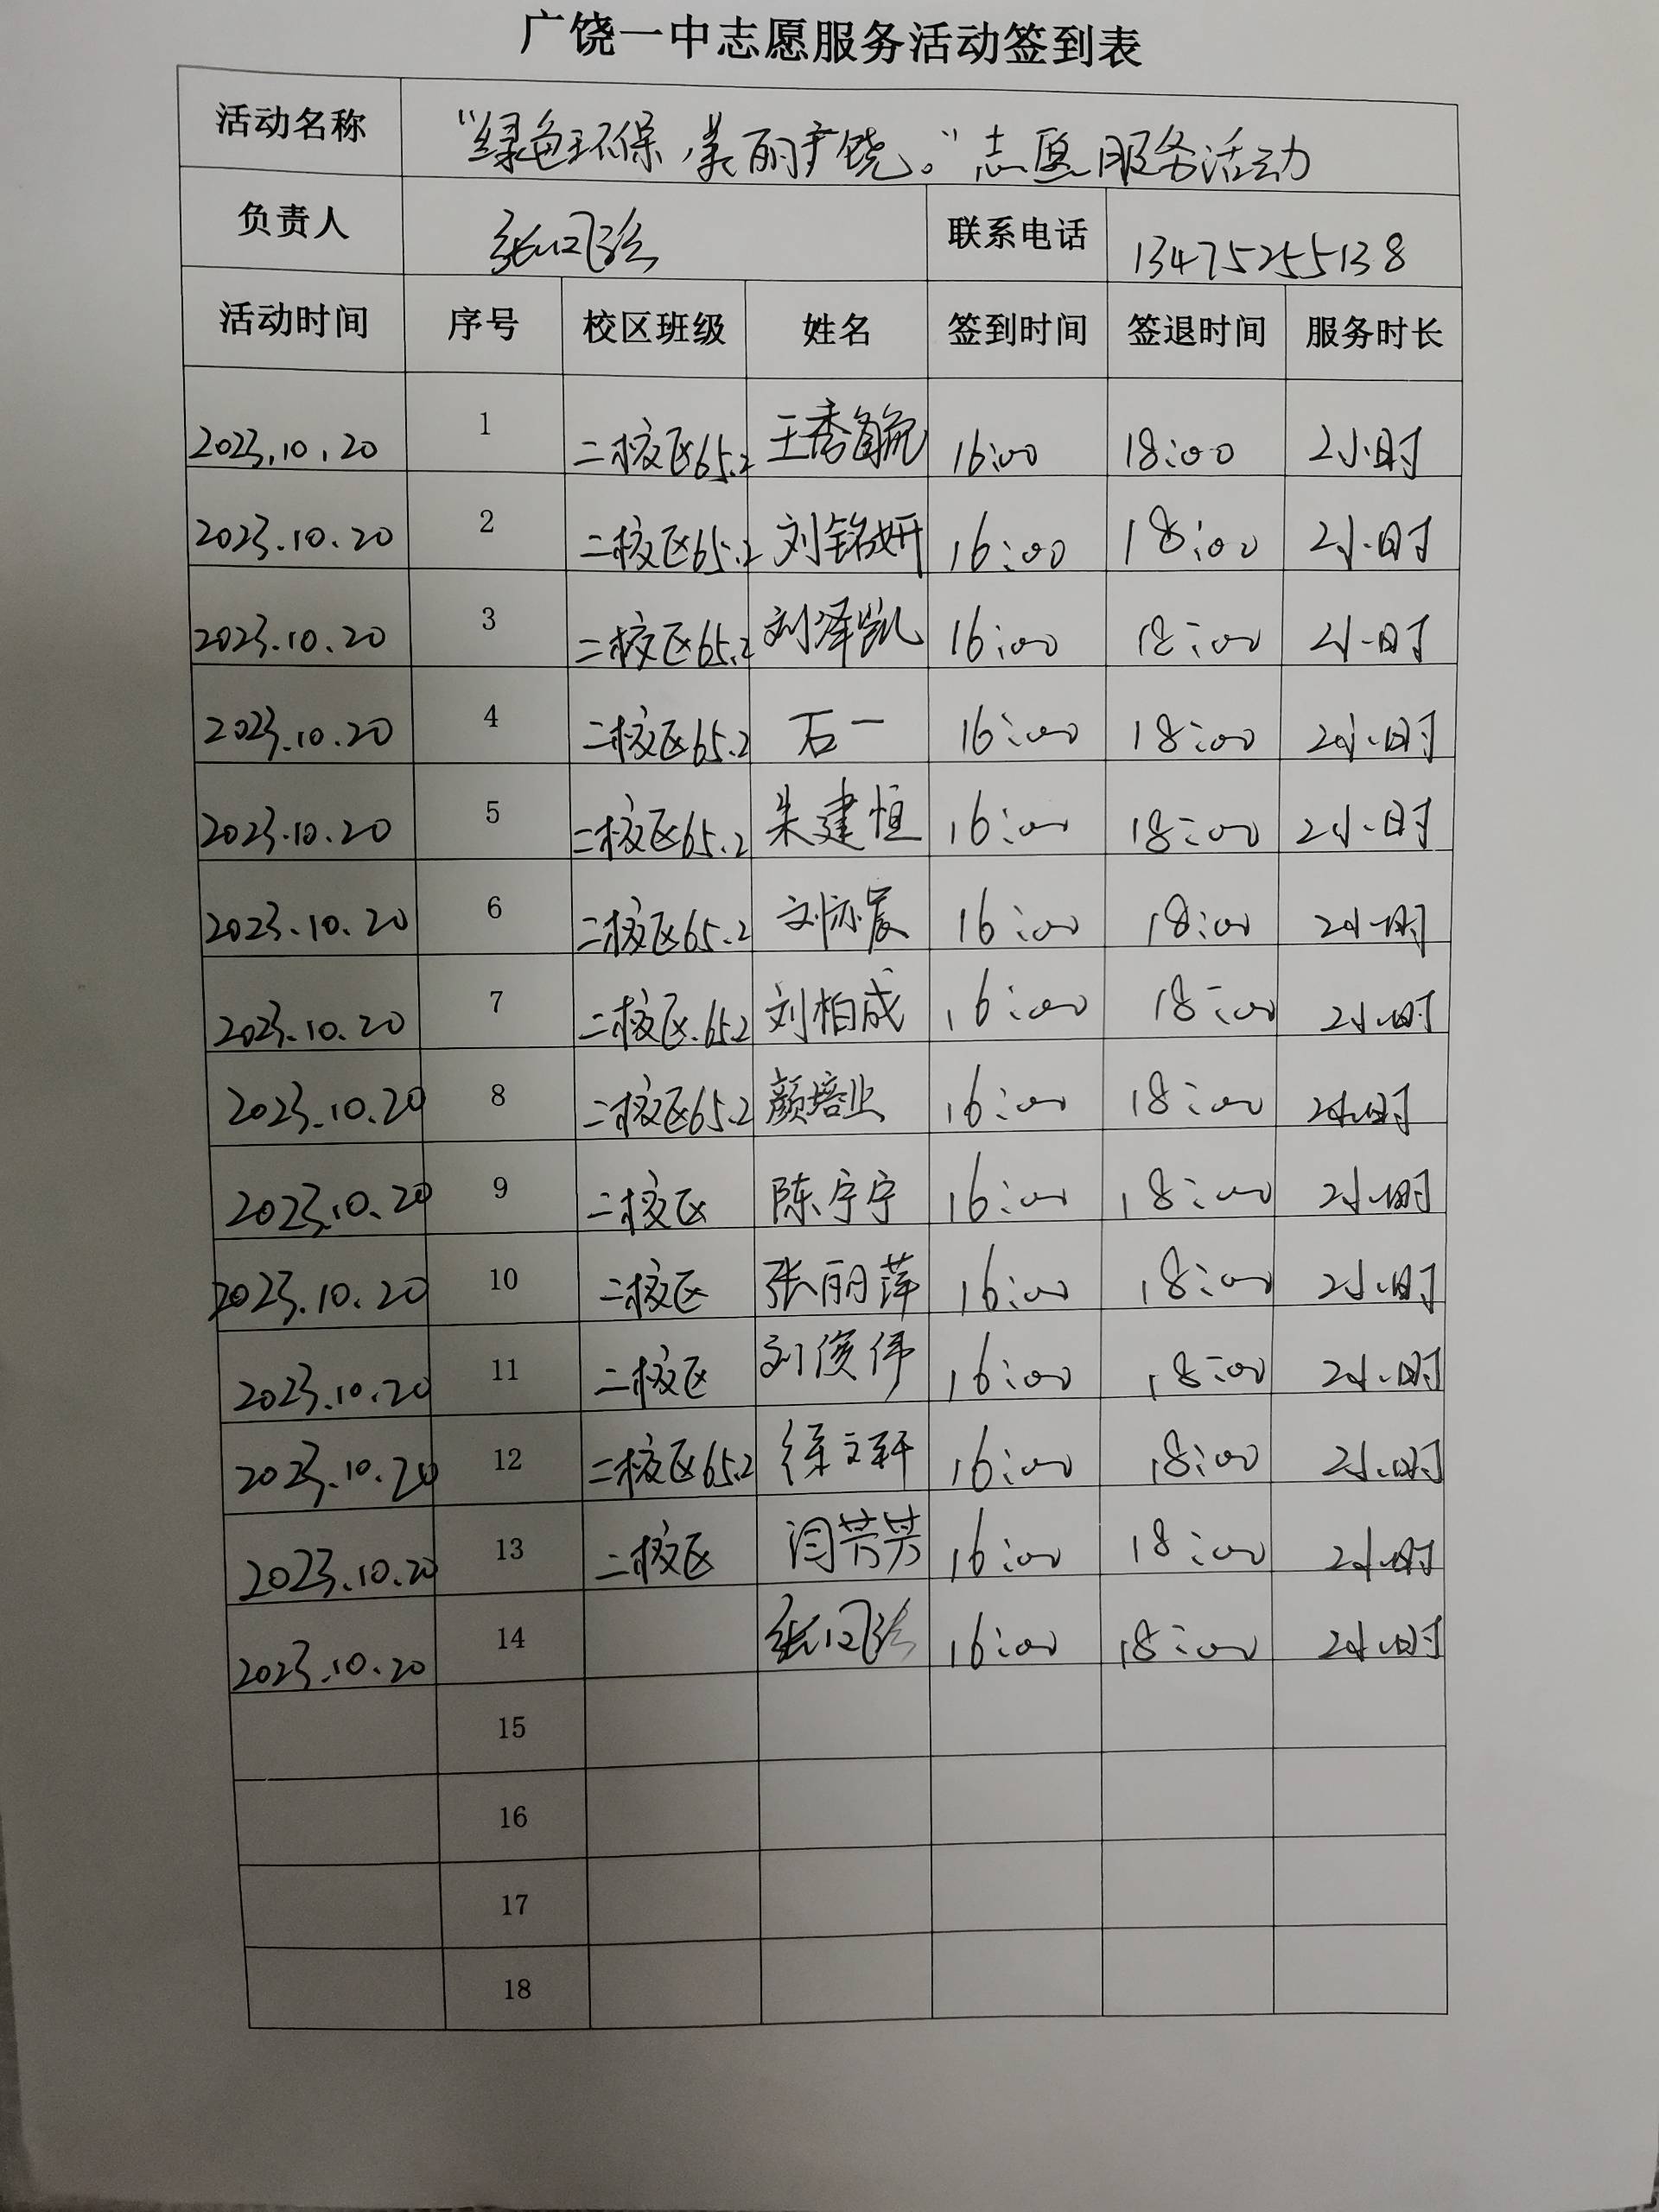 广饶一中志愿服务活动签到表
活动名称 "绿色环保,美丽广饶。"志愿服务活动
负责人 联系电话 13475255138
活动时间 序号 校区班级 姓名 签到时间 签退时间 服务时长
2023.10.20 1 二校区65.2 王秀毓 16:00 18:00 2小时
2023.10.20 2 二校区65.2 刘铭妍 16:00 18:00 2小时
2023.10.20 3 二校区65.2 刘泽凯 16:00 18:00 2小时
2023.10.20 4 二校区65.2 石一 16:00 18:00 2小时
2023.10.20 5 二校区65.2 朱建恒 16:00 18:00 2小时
2023.10.20 6 二校区65.2 刘亦宸 16:00 18:00 2小时
2023.10.20 7 二校区.65.2 刘柏成 16:00 18:00 2小时
2023.10.20 8 二校区65.2 颜培业 16:00 18:00 2小时
2023.10.20 9 二校区 陈宁宁 16:00 18:00 2小时
2023.10.20 10 二校区 张丽萍 16:00 18:00 2小时
2023.10.20 11 二校区 刘俊伟 16:00 18:00 2小时
2023.10.20 12 二校区65.2 徐文轩 16:00 18:00 2小时
2023.10.20 13 二校区 闫芳芳 16:00 18:00 2小时
2023.10.20 14 16:00 18:00 2小时
15
16
17
18